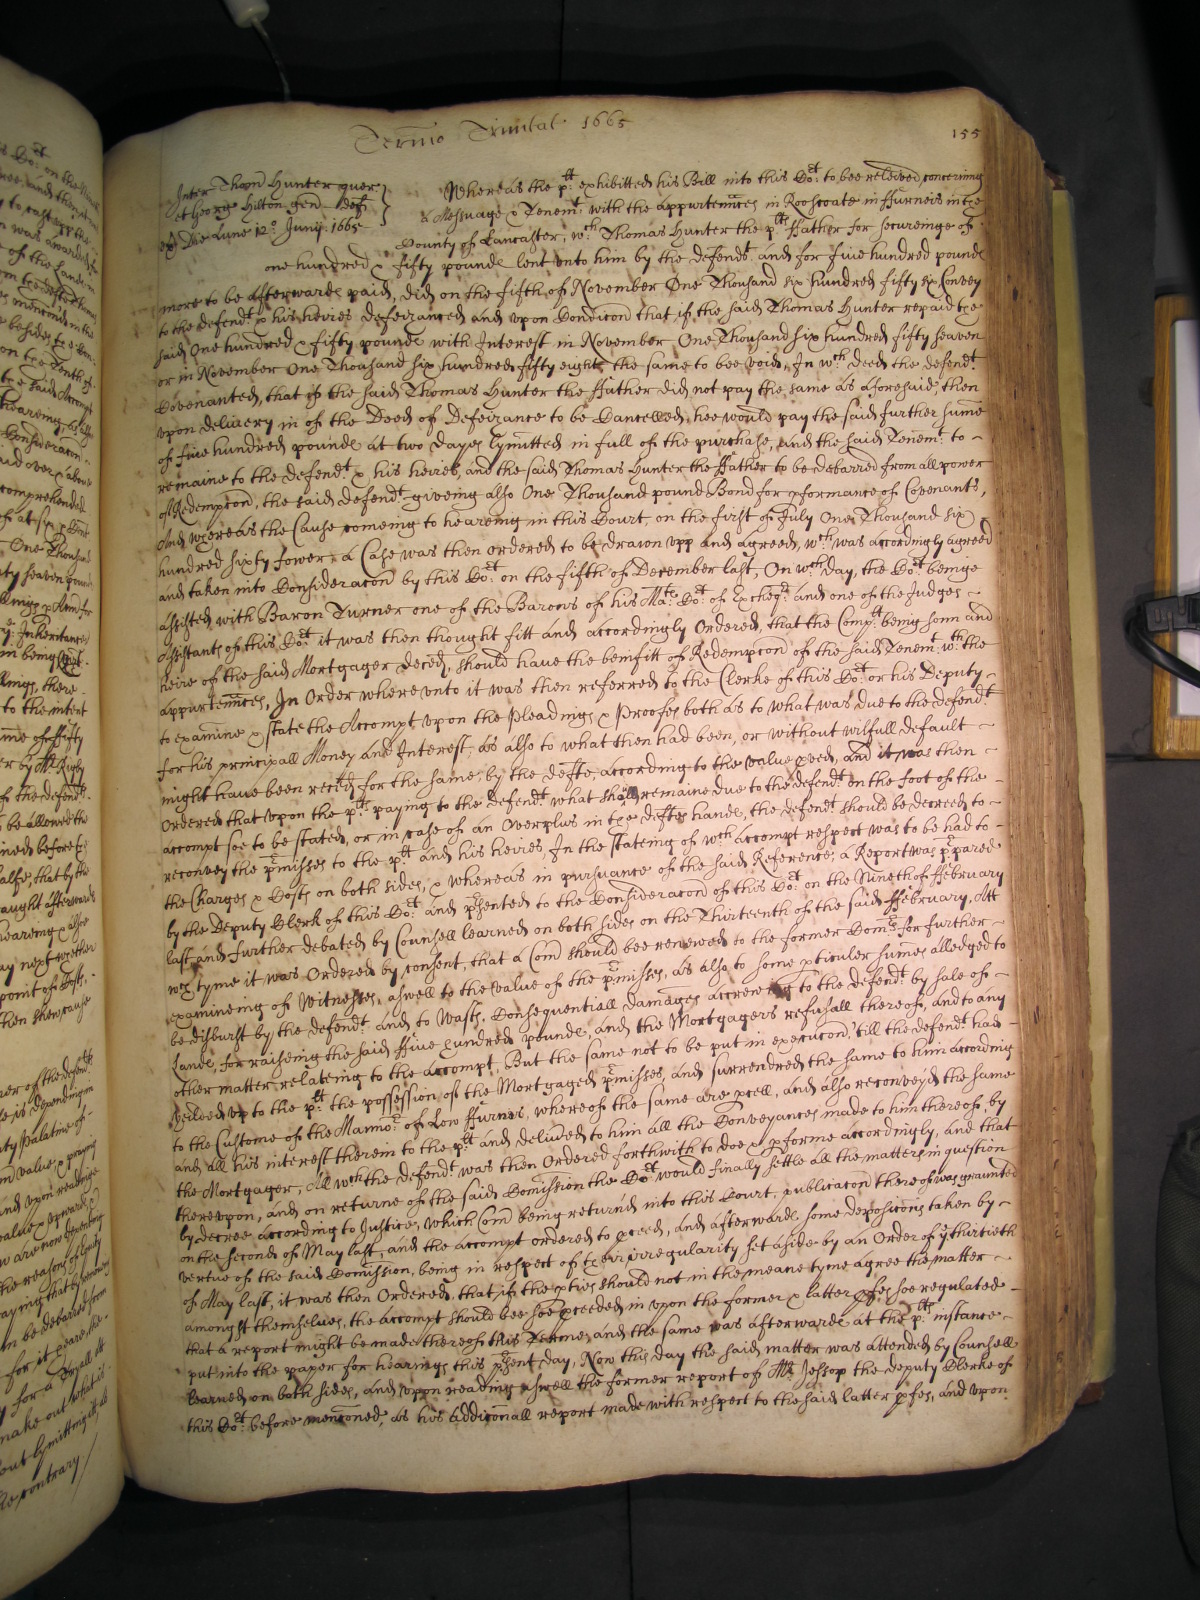 Termo Trinitat 1665
155
Inter Thom Hunter quer
et George Hilton gen Def
die Lune 12o Junij 1665
Whereas the plt exhibitted his Bill into this Cort to bee releived, concerning
a Messuage & Tenemt with the appurtennces in Rooscoate in ffurneis in the
County of Lancaster, wch Thomas Hunter the plts ffather for secureinge of
one hundred & fifty pounds lent vnto him by the defendt and for fiue hundred pounds
more to be afterwards paid, did on the fifth of November One Thousand six hundred fifty six Convey
to the defendt & his heires defeizanced and vpon Condicon that if the said Thomas Hunter repaid the
said One hundred & fifty pounds with Interest in November One Thousand six hundred fifty seaven
or in November One Thousand six hundred fifty eight the same to bee void, In wch deed the defendt
Covenanted, that if the said Thomas Hunter the ffather did not pay the same as aforesaid, then
vpon delivery in of the Deed of Defeizance to be Cancelled, hee would pay the said further sume
of fiue hundred pounds at two dayes lymitted in full of the purchase, and the said Tenemt to
remaine to the defendt & his heires, and the said Thomas Hunter the ffather to be debarred from all power
of Redempcon, the said defendt giveing also One Thousand pound Bond for pformance of Covenants,
And whereas the Cause comeing to heareing in this Court, on the first of July One Thousand six
hundred sixty fower, a Case was then ordered to be drawn vpp and agreed, wch was accordingly agreed
and taken into Consideracon by this Cort on the fifth of December last, On wch day, the Cort beinge
assisted with Baron Turner one of the Barons of his Mats Cort of Excheqr and one of the Judges
Assistants of this Cort it was then thought fitt and accordingly Ordered, that the Complt being sonn and
heire of the said Mortgager deced, should have the benifitt of Redempcon of the said Tenemt wth the
appurtennces, In Order wherevnto it was then referred to the Clerke of this Cort or his Deputy
to examine & state the Accompt vpon the Pleadings & Proofes both as to what was due to the defendt
for his principall Money and Interest, as also to what then had been, or without wilfull default
might have been reced for the same, by the defte, according to the value pved, And it was then
Ordered that vpon the plts paying to the defendt what shall remaine due to the defendt on the foot of the
accompt soe to be stated, or in case of an Overplus in the defts hands, the defendt should be decreed to
reconvey the pmisses to the plt and his heires, In the stateing of wch accompt respect was to be had to
the Charges & Costs on both sides, & whereas in pursuance of the said Reference, a Report was ppared
by the Deputy Clerk of this Cort and psented to the Consideracon of this Cort on the Nineth of ffebruary
last, and further debated by Counsell learned on both sides on the Thirteenth of the said ffebruary, Att
wch tyme it was Ordered by consent, that a Com should bee renewed to the former Comrs for further
examineing of Witnesses, aswell to the value of the pmisses, as also to some pticuler sumes alledged to
be disburst by the defendt and to Wasts, Consequentiall damages accrewing to the defendt by sale of
Lands, for raiseing the said ffiue hundred pounds, and the Mortgagers refusall thereof, and to any
other matter relateing to the accompt, But the same not to be put in execucon, till the defendt had
yeilded vp to the plt the possession of the Mortgaged pmisses, and surrendred the same to him according
to the Custome of the Mannor of Low ffurnes, whereof the same are pcell, and also reconveyed the same
and all his interest therein to the plt and delived to him all the Conveyances made to him thereof, by
the Mortgager, All wch the defendt was then Ordered forthwith to doe & pforme accordingly, and that
therevpon, and on returne of the said Comission the Cort would finally settle all the matters in question
by decree according to Justice, Which Com being returned into this Court, publicacon thereof was graunted
on the second of May last, and the accompt ordered to pceed, and afterwards some deposicons taken by
vertue of the said Comission, being in respect of their irregularity set aside by an Order of ye thirtieth
of May last, it was then Ordered, that if the pties should not in the meane tyme agree the matter
amongst themselves, the accompt should bee soe pceeded in vpon the former & latter pfes soe regulated
that a report might be made thereof this Terme, and the same was afterwards at the plts instance
put into the paper for hearings this psent day, Now this day the said matter was attended by Counsell
learned on both sides, and vpon reading aswell the former report of Mr Jessop the deputy Clerke of
this Cort before menconed, as his Addiconall report made with respect to the said latter pfes, and vpon